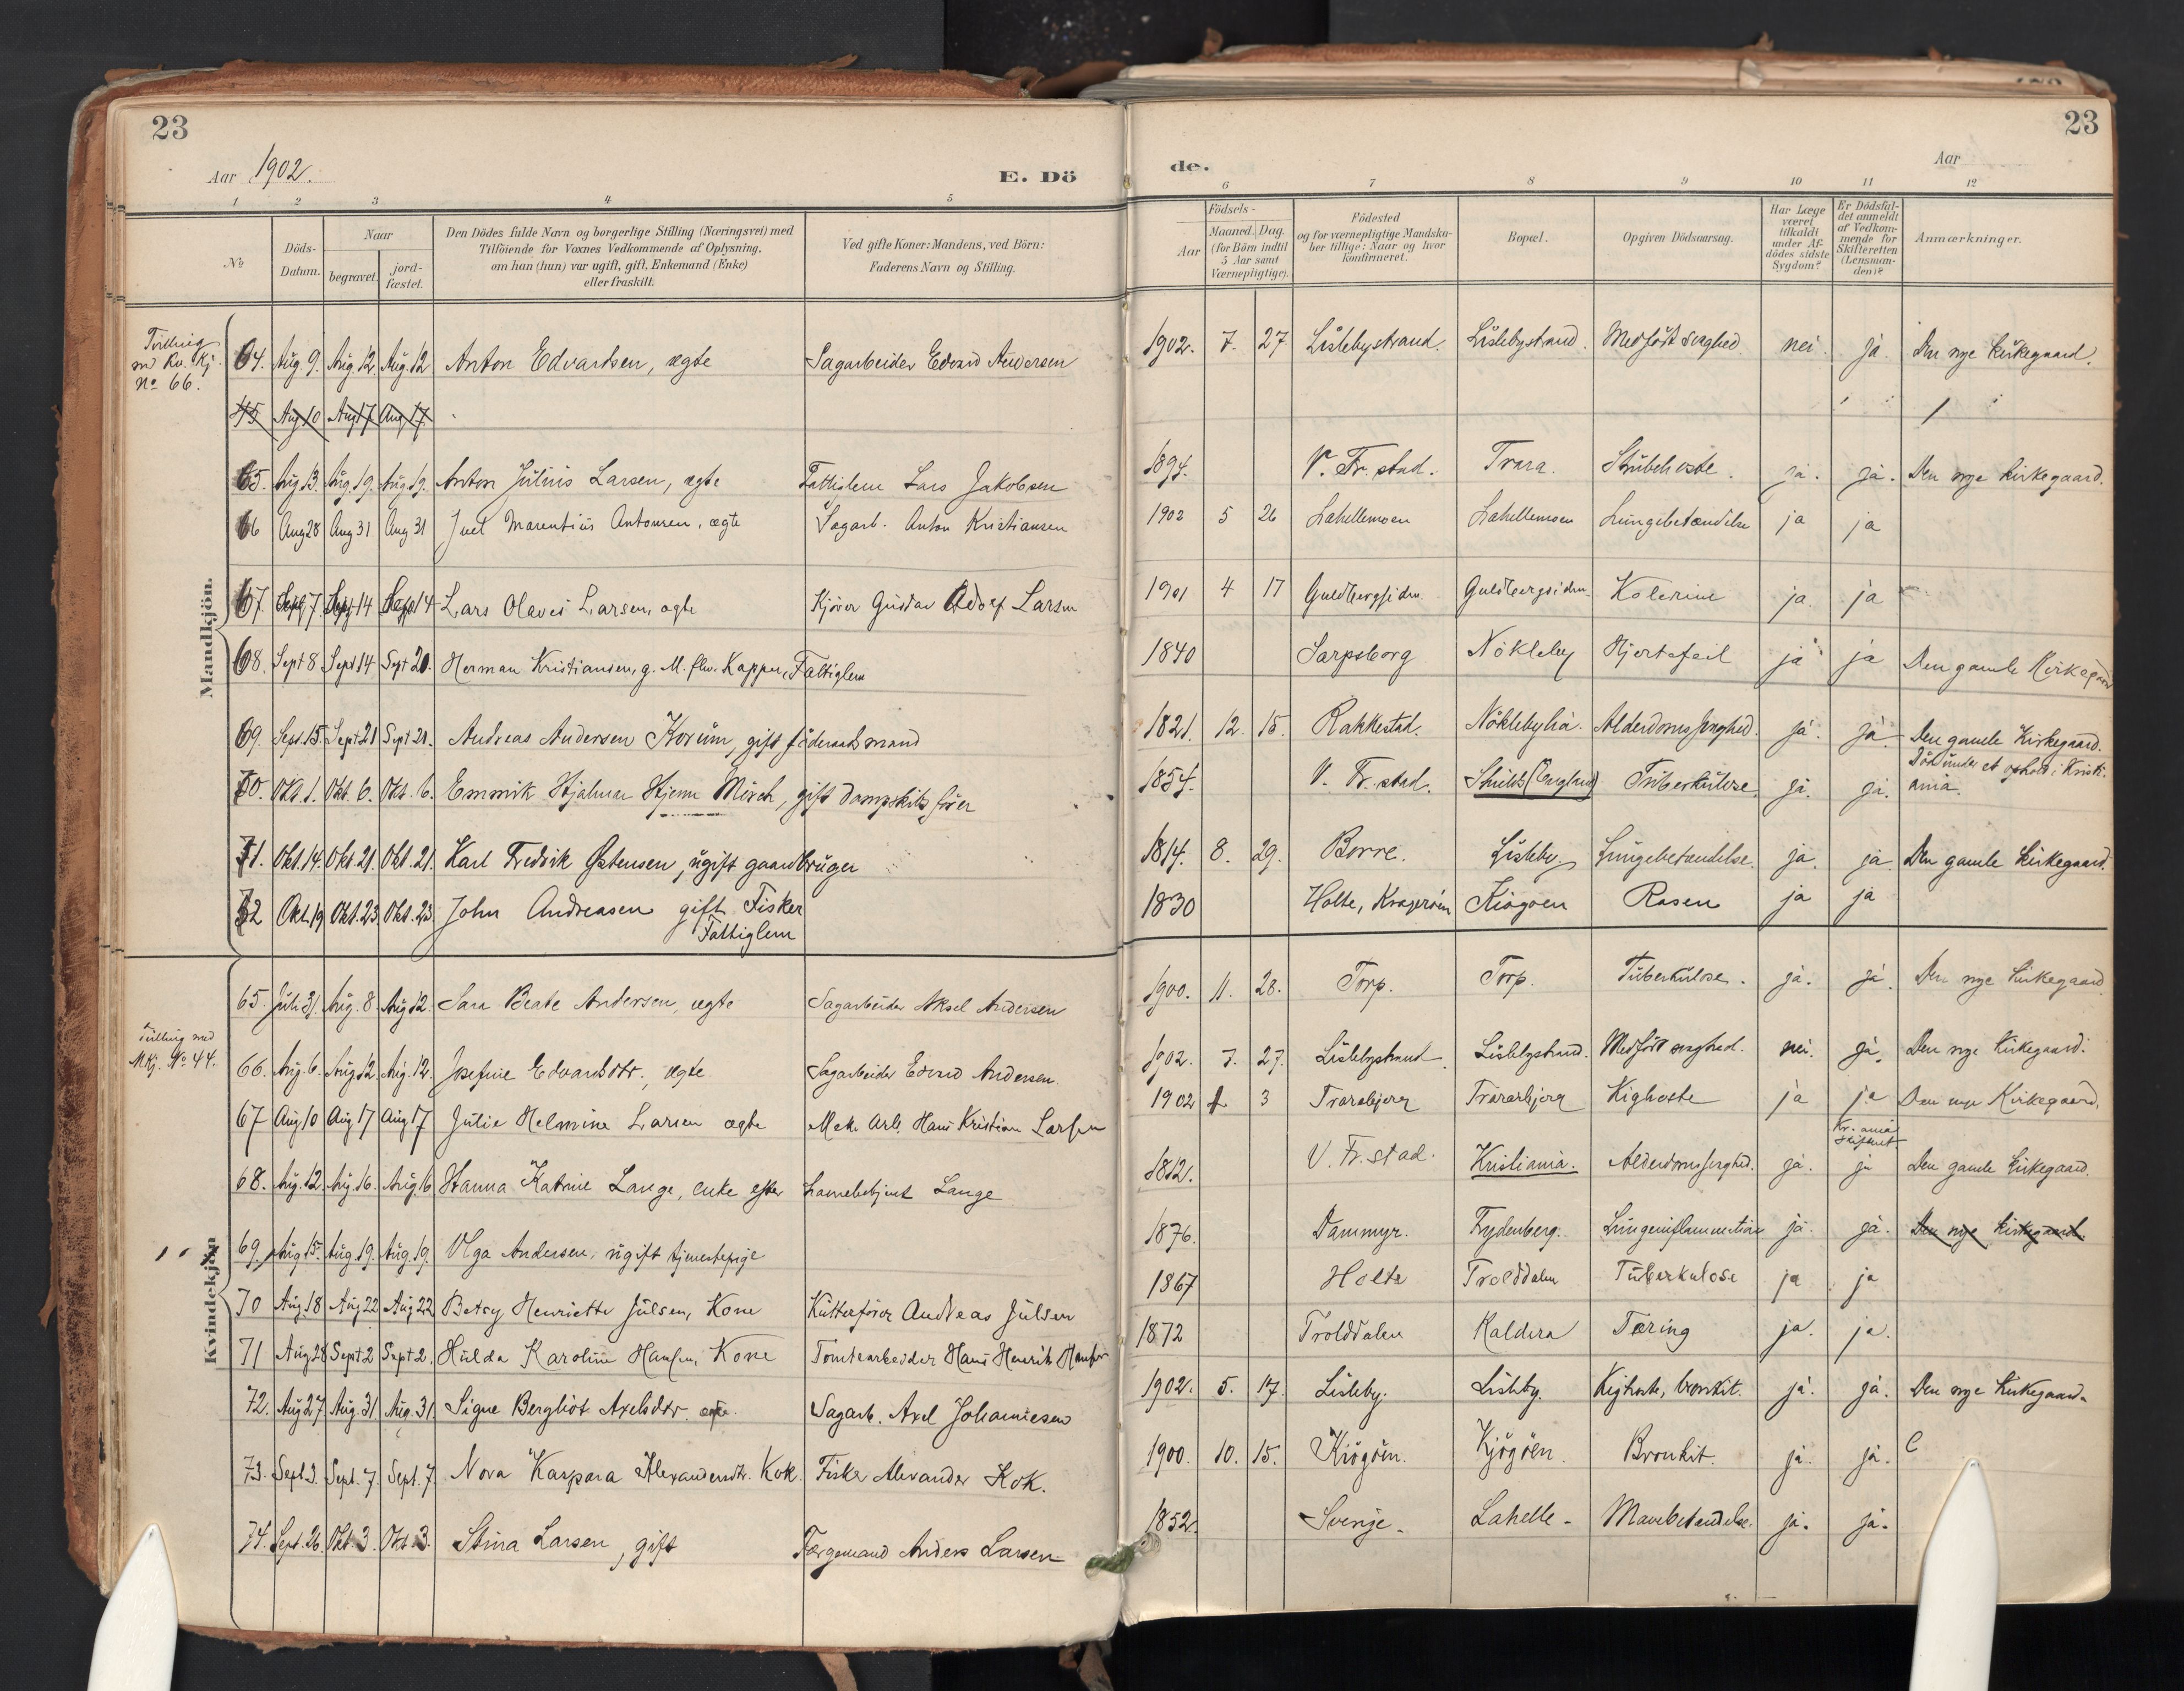 23
23
Aar 1902.
E. Dö
de.
Aar
1 2 3 4 5 6 7 8 9 10 11 12
No
Döds-Datum.
Naar begravet. jordfæstet.
Den Dödes fulde Navn og borgerlige Stilling (Næringsvei) med Tilföiende for Voxnes Vedkommende af Oplysning, om han (hun) var ugift, gift, Enkemand (Enke) eller fraskilt.
Ved gifte Koner: Mandens, ved Börn: Faderens Navn og Stilling.
Födsels- Aar Maaned. Dag. (for Börn indtil 5 Aar samt Værnepligtige).
Födested og for værnepligtige Mandskaber tillige: Naar og hvor konfirmeret.
Bopæl.
Opgiven Dödsaarsag.
Har Læge været tilkaldt under Afdödes sidste Sygdom?
Er Dödsfaldet anmeldt af Vedkommende for Skifteretten (Lensmanden)?
Anmærkninger.
Mandkjön.
Tvilling m Kv. Kj. No 66.
64. Aug. 9. Aug. 12. Aug. 12 Anton Edvardsen, ægte Sagarbeider Edvard Andersen 1902. 7. 27. Lislebystrand. Lislebystrand. Medfödt svaghed. nei. ja. Den nye Kirkegaard.
45 Aug 10 Aug 17 Aug 17.
65. Aug 13. Aug. 19. Aug. 19. Anton Julius Larsen, ægte Fattiglem Lars Jakobsen 1894. V. Fr.stad. Trara. Strubehoste. ja. ja. Den nye Kirkegaard.
66 Aug 28 Aug 31 Aug 31 Juel Marentius Antonsen, ægte Sagarb. Anton Kristiansen 1902 5 26 Lahellemoen Lahellemoen Lungebetændelse ja ja
67. Sept 7. Sept 14 Sept 14 Lars Olaves Larsen, ægte Kjører Gustav Adolf Larsen 1901 4 17 Guldbergsiden Guldbergsiden Kolerine ja ja
68. Sept 8. Sept 14 Sept 20. Herman Kristiansen, g. M. Kapper, Fattiglem 1840 Sarpsborg Nökleby Hjertefeil ja ja Den gamle Kirkegaard
69. Sept. 15. Sept 21 Sept 21. Andreas Andersen Korum, gift föderaadsmand 1821. 12. 15. Rakkestad. Nöklebylia. Alderdomssvaghed. ja. ja. Den gamle Kirkegaard.
70. Okt. 1. Okt. 6. Okt. 6. Emmik Hjalmar Hjem Mörch, gift dampskibsförer 1854. V. Fr.stad. Shields (England) Tuberkulose. ja. ja. Död under et ophold i Kristiania.
71. Okt. 14. Okt. 21. Okt. 21. Karl Fredrik Østensen, ugift gaardbruger 1814. 8. 29. Borre. Lisleby. Lungebetændelse. ja. ja. Den gamle Kirkegaard.
72 Okt. 19 Okt. 23 Okt. 23 John Andreasen gift Fisker Fattiglem 1830 Holte, Kragerøen Kiøgøen Rosen ja ja
Kvindekjön
65. Juli 31. Aug. 8 Aug 12. Sara Beate Andersen, ægte Sagarbeider Aksel Andersen 1900. 11. 28. Torp. Torp. Tuberkulose. ja. ja. Den nye Kirkegaard
Tvilling med MKj. No 44.
66. Aug. 6. Aug 12. Aug. 12. Josefine Edvardsdtr., ægte Sagarbeider Edvard Andersen 1902. 7. 27. Lislebystrand. Lislebystrand. Medfödt svaghed. nei. ja. Den nye Kirkegaard.
67 Aug 10 Aug 17 Aug 17 Julie Helmine Larsen ægte Mek. Arb. Hans Kristian Larsen 1902 3 Trarabjerg Trarabjerg Kighoste ja ja Den nye Kirkegaard.
68. Aug. 12. Aug. 16. Aug. 16 Hanna Katrine Lange, enke efter Lange 1812. V. Fr.stad. Kristiania. Alderdomssvaghed. ja. Kr.ania Skifteret ja Den gamle Kirkegaard.
69. Aug 15. Aug. 19. Aug. 19. Olga Andersen, ugift tjenestepige 1876. Dammyr. Frydenberg. Lungeinflammation ja. ja. Den nye Kirkegaard.
70 Aug 18 Aug 22 Aug 22 Betsy Henriette Julsen, Kone Kutterfører Andreas Julsen 1867 Holte Trolddalen Tuberkulose ja ja
71 Aug 28 Sept 2 Sept 2. Hulda Karoline Hansen, Kone Tomtearbeider Hans Henrik Hansen 1872 Trolddalen Kaldera Tæring ja. ja.
72. Aug 27 Aug. 31 Aug. 31 Signe Bergliot Axelsdtr. ægte. Sagarb. Axel Johannesen 1902. 5. 17. Lisleby. Lisleby. Kighoste, bronkit. ja. ja. Den nye Kirkegaard.
73. Sept 3. Sept. 7. Sept. 7. Nora Kaspara Alexandersdtr. Kok. Fisker Alexander Kok. 1900. 10. 15. Kiögöen. Kjögöen. Bronkit. ja. ja.
74. Sept. 26. Okt. 3. Okt. 3. Stina Larsen, gift Færgemand Anders Larsen 1852. Sverige. Lahelle. Mavebetændelse. ja. ja.